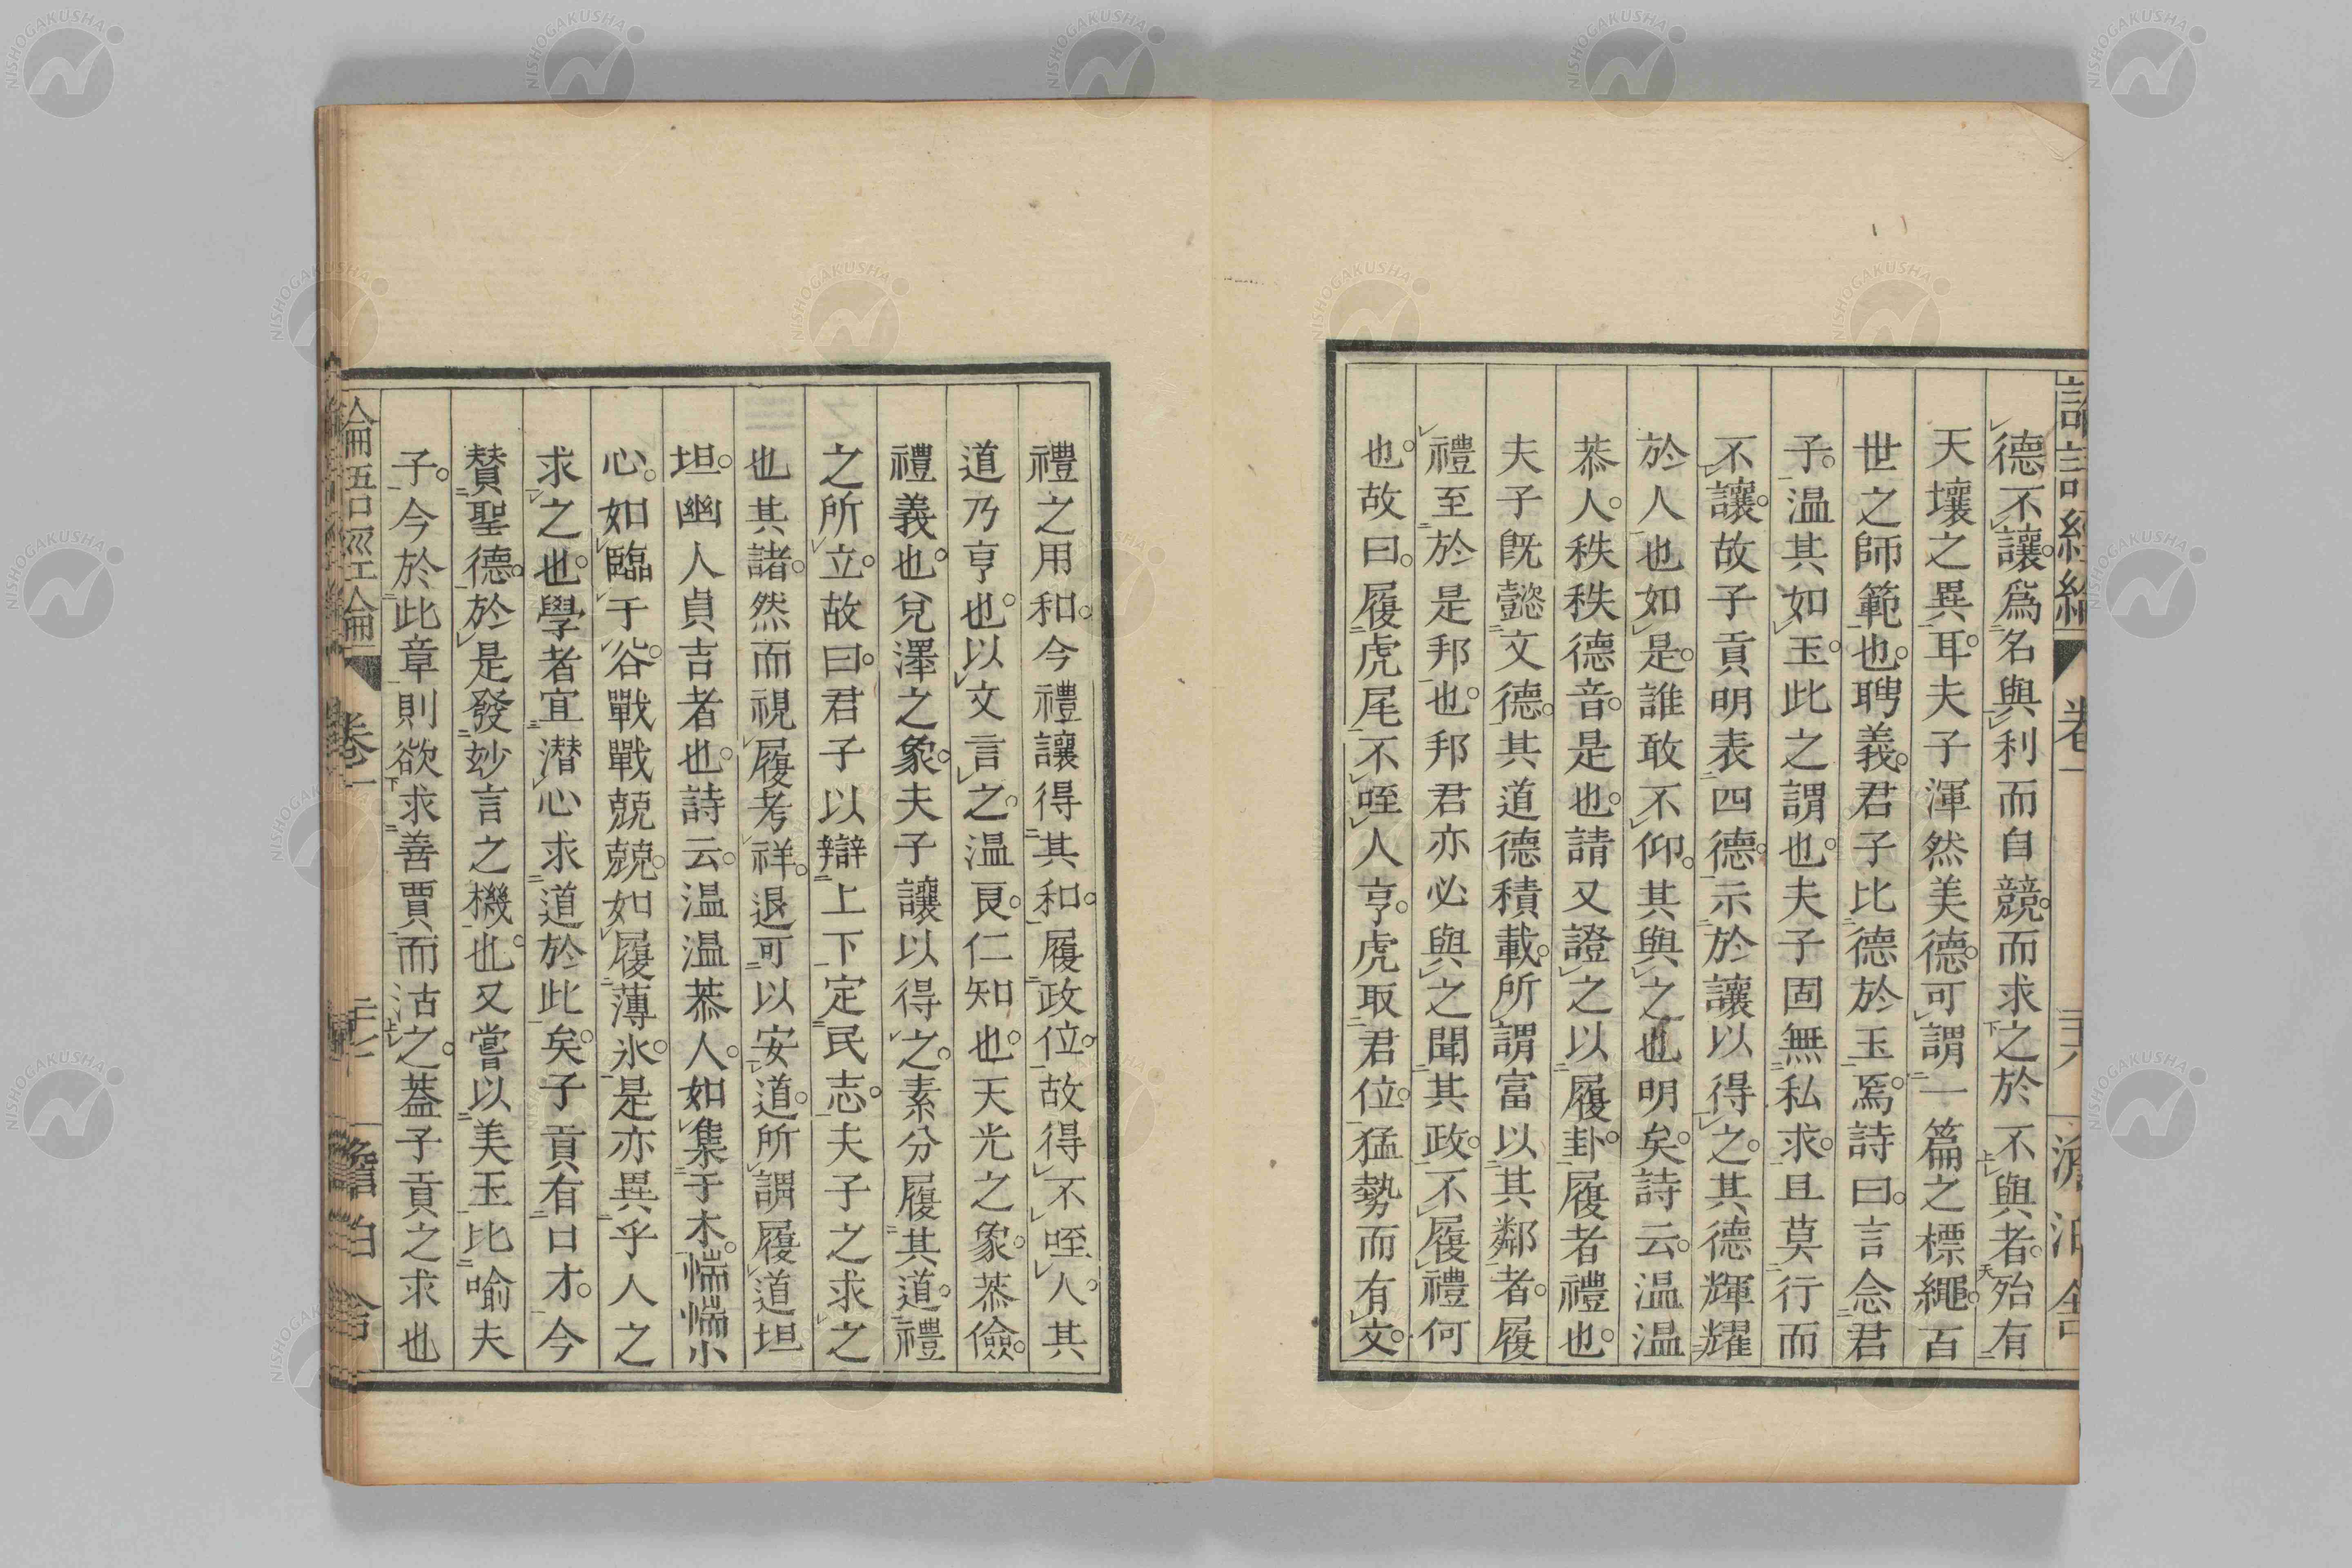 德不讓。爲名與利而自競。而求之於不與者。殆有
天壤之異耳。夫子渾然美德。可謂一篇之標繩。百
世之師範也。聘義。君子比德於玉焉。詩曰。言念君
子。温其如玉。此之謂也。夫子固無私求。且莫行而
不讓。故子貢明表四德。示於讓以得之。其德輝耀
於人也如是。誰敢不仰。其與之也明矣。詩云。温温
恭人。秩秩德音。是也。請又證之以履卦。履者禮也。
夫子既懿文德。其道德積載。所謂富以其鄰者。履
禮至於是邦也。邦君亦必與之聞其政。不履禮何
也。故曰。履虎尾不咥人亨。虎取君位。猛勢而有文。
禮之用和。今禮讓得其和。履政位。故得不咥人。其
道乃亨也。以文言之。温良。仁知也。天光之象。恭儉。
禮義也。兌澤之象。夫子讓以得之。素分履其道。禮
之所立。故曰。君子以辯上下定民志。夫子之求之
也其諸。然而視履考祥。退可以安道。所謂履道坦
坦。幽人貞吉者也。詩云。温温恭人。如集于木。惴惴小
心。如臨于谷。戰戰兢兢。如履薄氷。是亦異乎人之
求之也。學者宜潛心求道於此矣。子貢有口才。今
賛聖德。於是發妙言之機也。又嘗以美玉比喻夫
子。今於此章則欲求善賈而沽之。葢子貢之求也
論語經綸 卷一